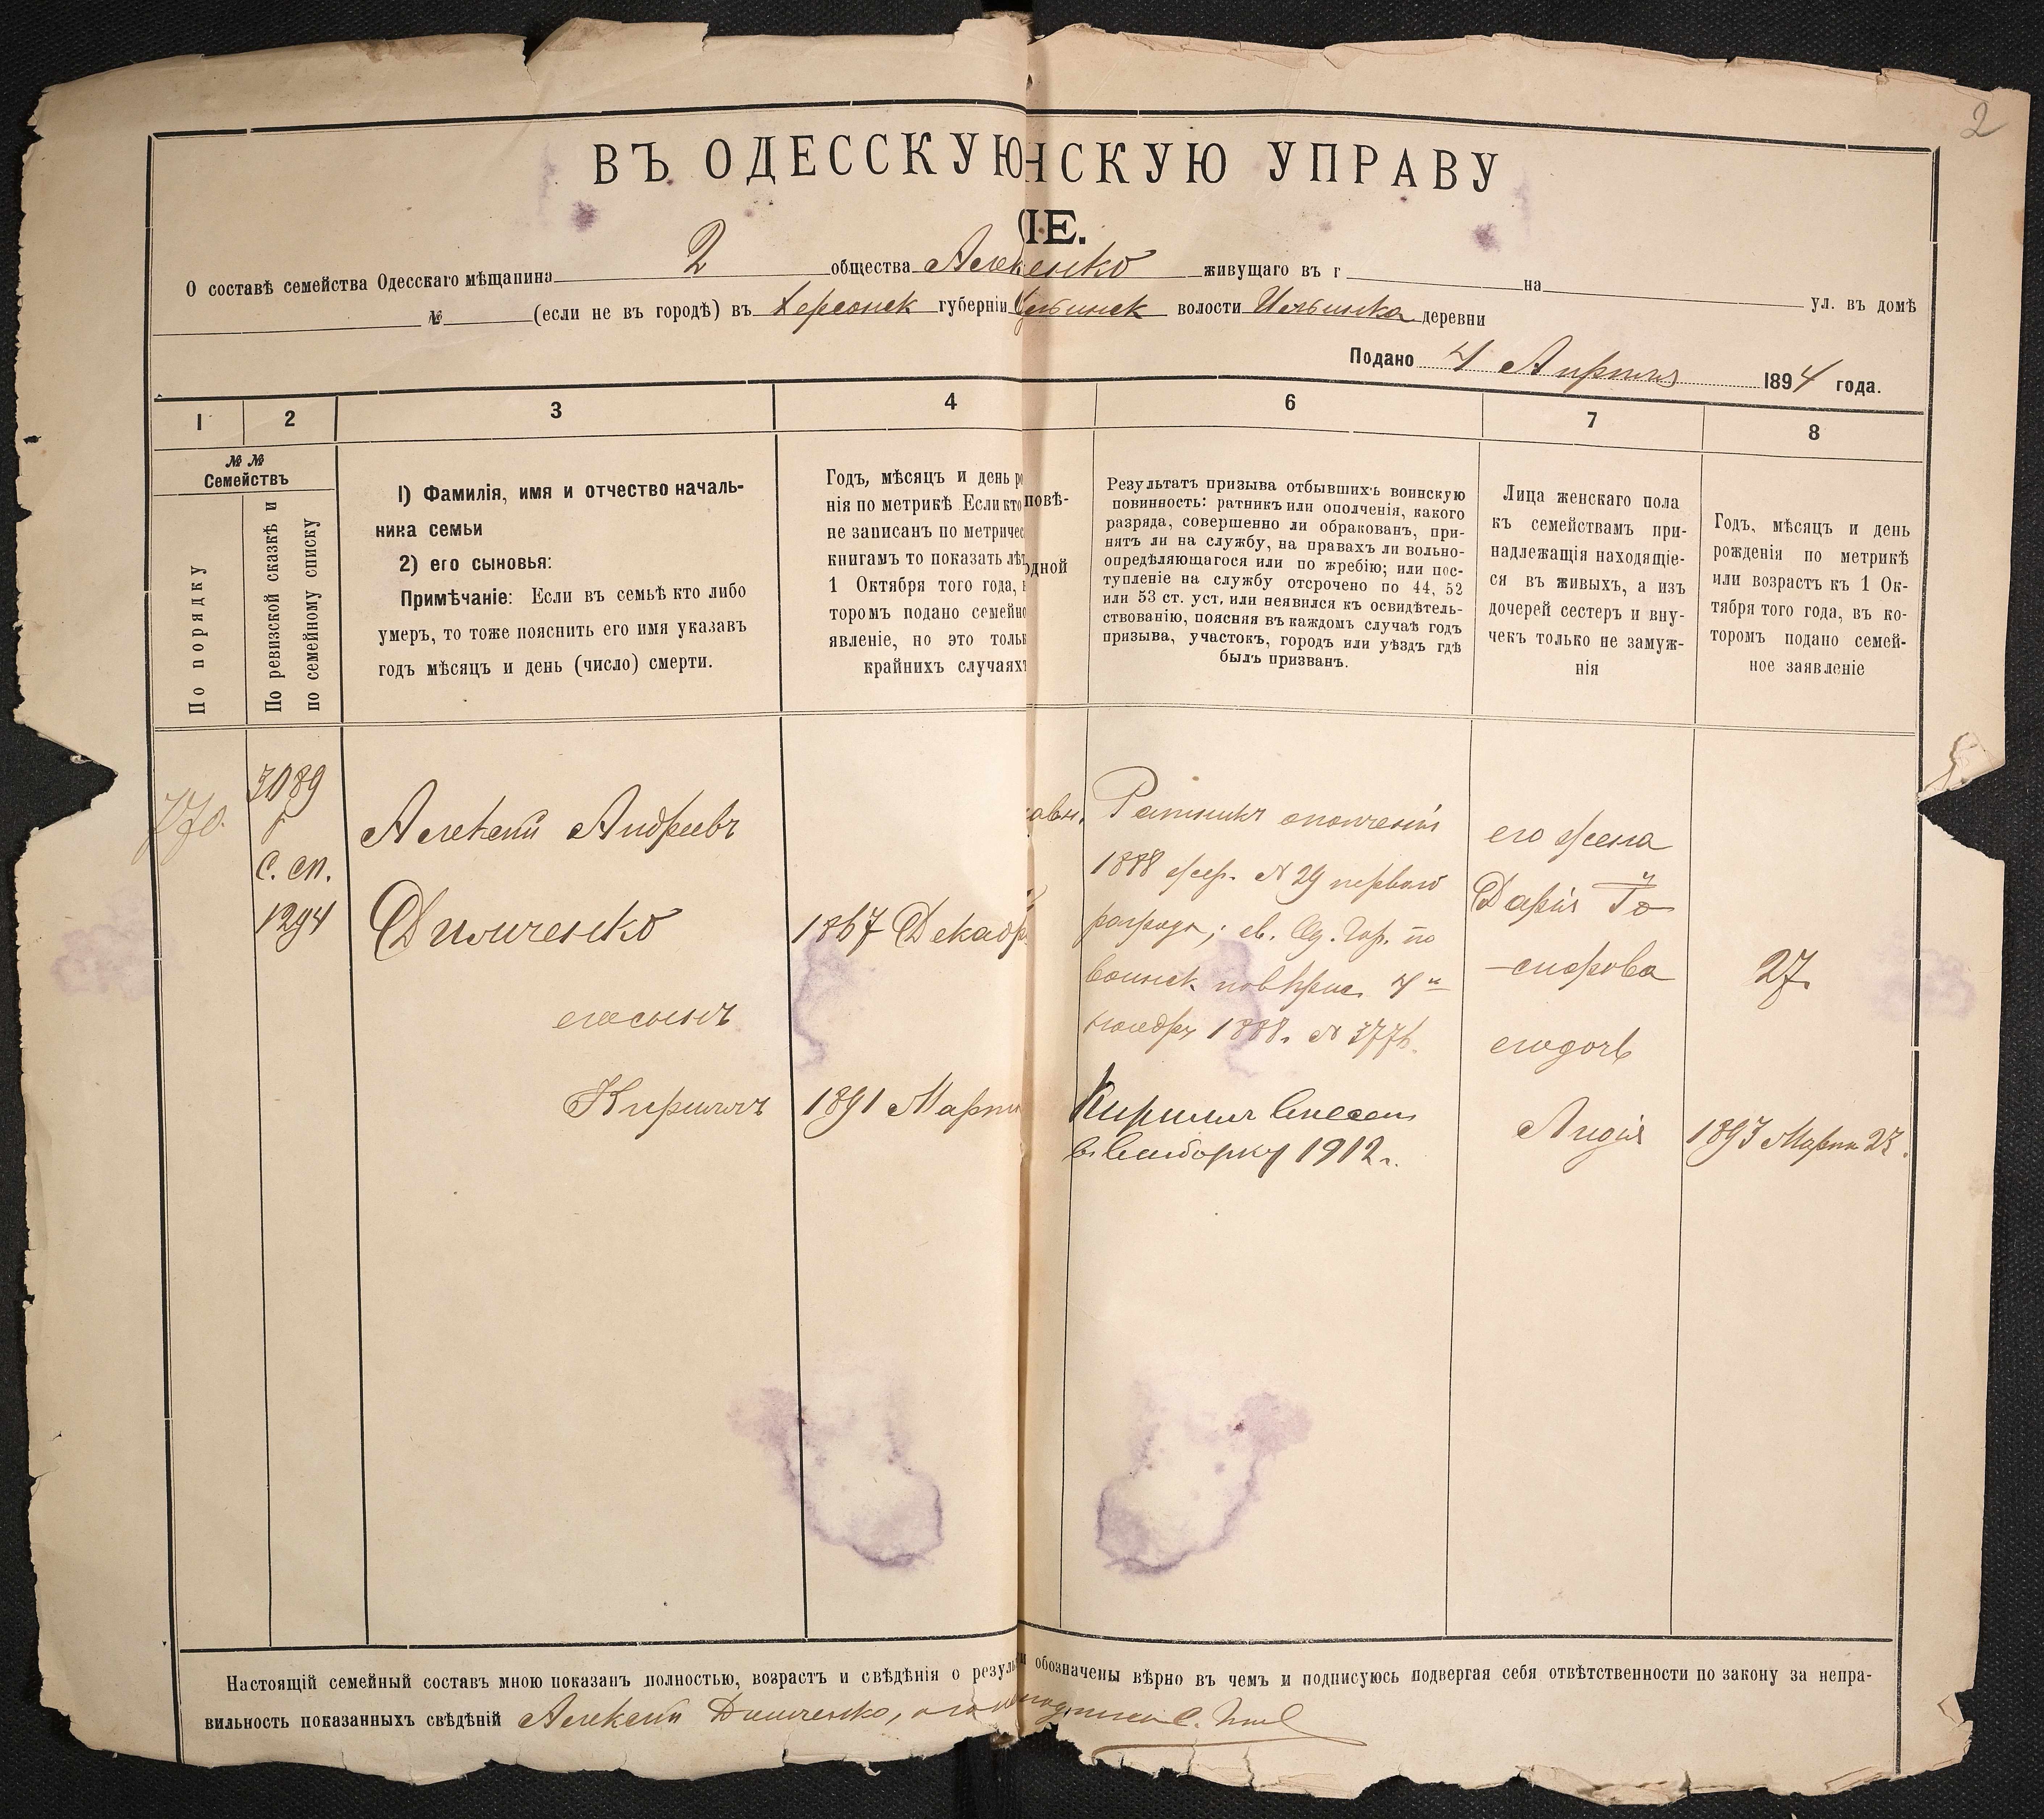 2
ВЪ ОДЕССКУЮ НСКУЮ УПРАВУ
IE.
О составѣ семейства Одесскаго мѣщанина 2 общества живущаго въ г на ул. въ домѣ
№ (если не въ городѣ) въ Херсонск губерніи волости Ильинка деревни
Подано 4 Апрѣля 1894 года.
1 2 3 4 6 7 8
№№
Семействъ
По порядку
По ревизской сказкѣ и
по семейному списку
1) Фамилія, имя и отчество началь-
ника семьи
2) его сыновья:
Примѣчаніе: Если въ семьѣ кто либо
умеръ, то тоже пояснить его имя указавъ
годъ мѣсяцъ и день (число) смерти.
Годъ, мѣсяцъ и день р
нія по метрикѣ Если кто
не записанъ по метричес
книгамъ то показать лѣт
1 Октября того года,
торомъ подано семейно
явленіе, но это толь
крайнихъ случаях
повѣ-
одной
Результатъ призыва отбывшихъ воинскую
повинность: ратникъ или ополченія, какого
разряда, совершенно ли обракованъ, при-
нятъ ли на службу, на правахъ ли вольно-
опредѣляющагося или по жребію; или пос-
тупленіе на службу отсрочено по 44, 52
или 53 ст. уст, или неявился къ освидѣтель-
ствованію, поясняя въ каждомъ случаѣ годъ
призыва, участокъ, городъ или уѣздъ гдѣ
былъ призванъ.
Лица женскаго пола
къ семействамъ при-
надлежащія находящіе-
ся въ живыхъ, а изъ
дочерей сестеръ и вну-
чекъ только не замуж-
нія
Годъ, мѣсяцъ и день
рожденія по метрикѣ
или возрастъ къ 1 Ок-
тября того года, въ ко-
торомъ подано семей-
ное заявленіе
770.
3089
с. сп.
1294
Алексѣй Андреевъ
Димченко
его сынъ
Кириллъ
1867 Декабр
1891 Март
Ратникъ ополченія
1888 жер. № 29 перваго
разряда; св. Од. Гор. по
воинск. повѣрис. 4
ноября 1888. №
Кириллъ внесен
в. выборку 1912 г.
его жена
Дарія
его дочь
Лидія
27.
1893 Марта 23.
Настоящій семейный составъ мною показанъ полностью, возрастъ и свѣдѣнія о резул и обозначены вѣрно въ чемъ и подписуюсь подвергая себя отвѣтственности по закону за непра-
вильность показанныхъ свѣдѣній Алексѣй Димченко,